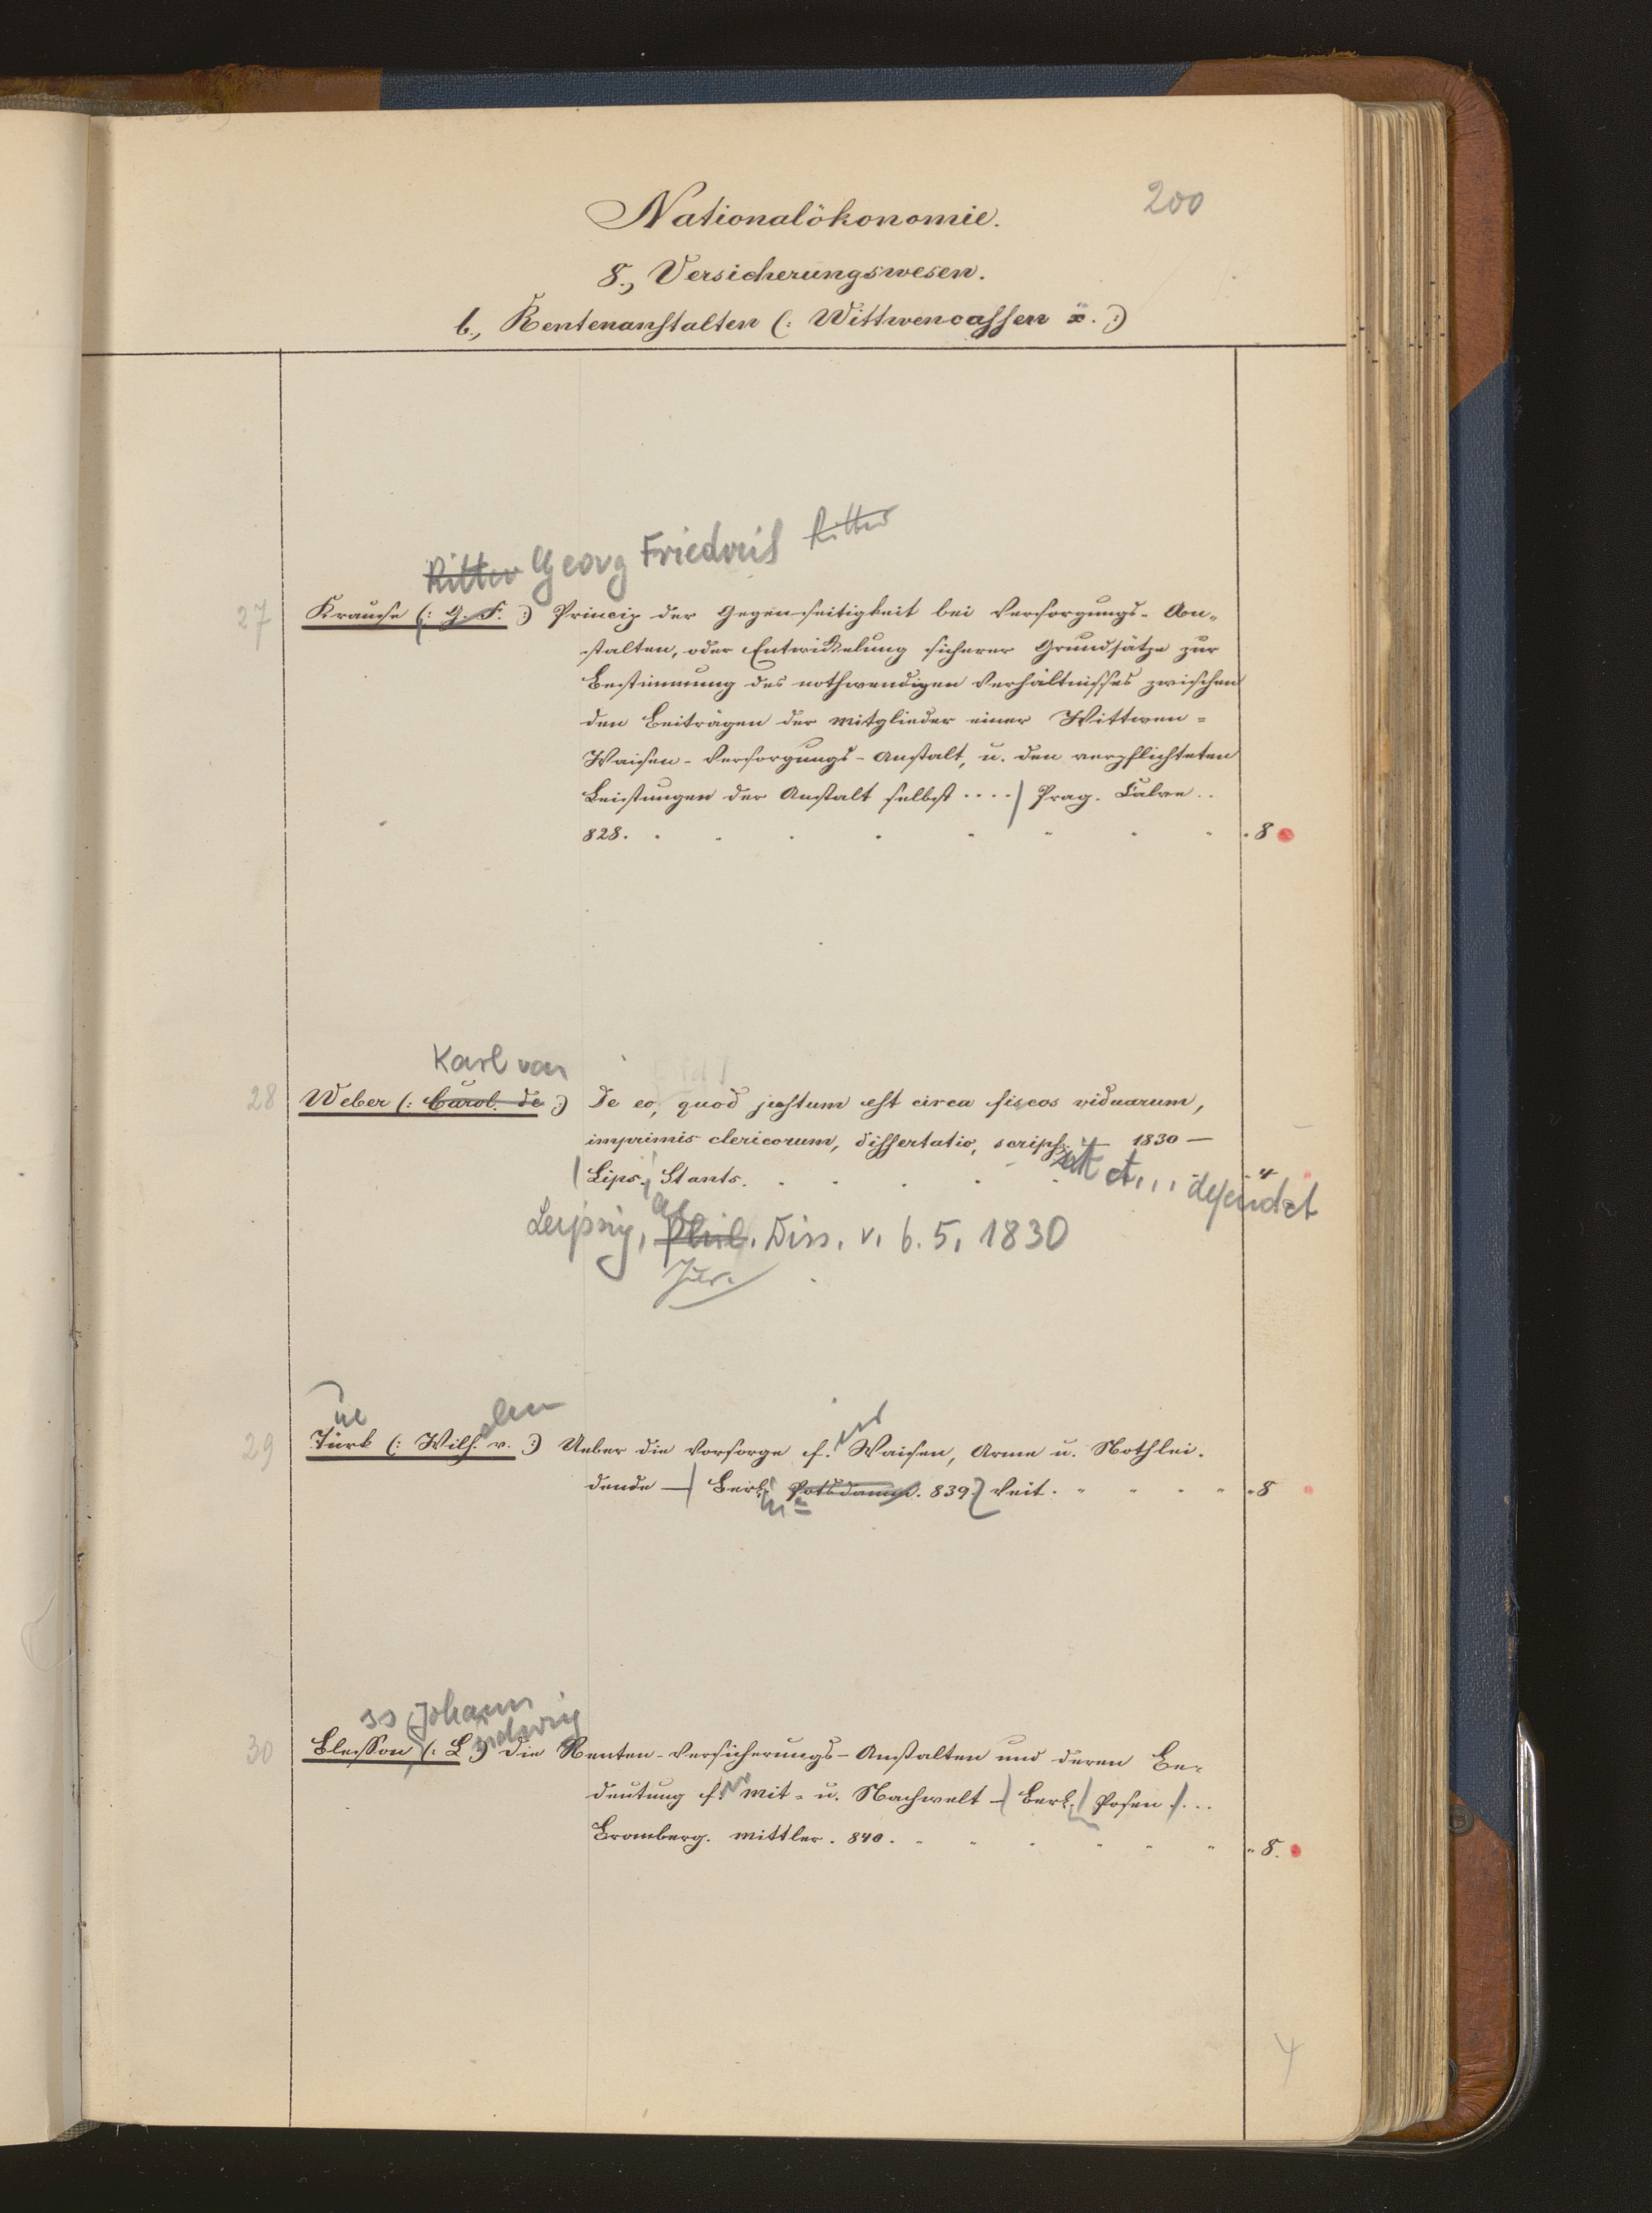 200
Nationalökonomie.
8., Versicherungswesen.
b., Rentenanstalten (: Wittwencassen :)
Ritter Georg Friedrich Ritter
27 Krause (: G. F. :) Princip der Gegenseitigkeit bei Versorgungs-An-
stalten, oder Entwickelung sicherer Grundsätze zur
Bestimmung des nothwendigen Verhältnisses zwischen
den Beiträgen der Mitglieder einer Wittwen-
Waisen-Versorgungs-Anstalt, u. den verpflichteten
Leistungen der Anstalt selbst .... / Prag. Calve ..
828. 8
Karl von
28 Weber (: Carol. de :) De eo, quod justum est circa fiscos viduarum,
imprimis clericorum, dissertatio, scrips. — 1830 —
Lips. Starits. 4
Leipzig, Phil. Diss. v. 6. 5. 1830
Jur.
29 Türk (: Wilh. v. :) Ueber die Vorsorge f. Waisen, Arme u. Nothlei-
dende — Berl. Potsdam. 839. Veit. 8
ss Johann
Ludwig
30 Blesson (: L :) Die Renten-Versicherungs-Anstalten und deren Be-
deutung f. Mit- u. Nachwelt — Berl. Posen ...
Bromberg. Mittler. 840. 8.
4